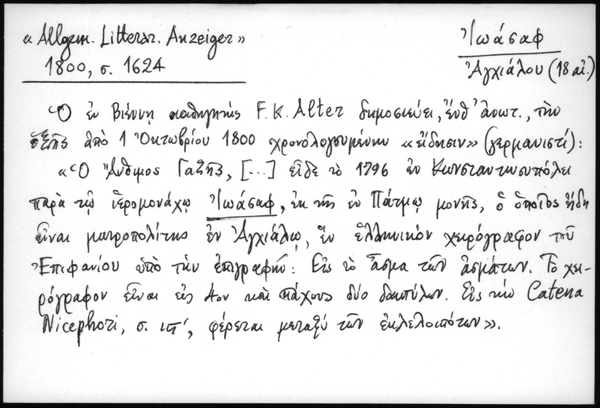 « Allgem. Litterar. Anzeiger»
1800, σ. 1624
Ἰωάσαφ
Ἀγχιάλου (18 αἰ.)
Ὁ ἐν Βιέννῃ καθηγητής F. K. Alter δημοσιεύει, ἔνθ' ἀνωτ., τὴν
ἑξῆς ἀπό 1 Ὀκτωβρίου 1800 χρονολογουμένην «εἴδησιν» (γερμανιστί):
«Ὁ Ἄνθιμος Γαζῆς, [...] εἶδε τὸ 1796 ἐν Κωνσταντινουπόλει
παρὰ τῷ ἱερομονάχῳ Ἰωάσαφ, ἐκ τῆς ἐν Πάτμῳ μονῆς, ὁ ὁποῖος ἤδη
εἶναι μητροπολίτης ἐν Ἀγχιάλῳ, ἓν ἑλληνικὸν χειρόγραφον τοῦ
Ἐπιφανίου ὑπὸ τὴν ἐπιγραφήν: Εἰς τὸ ᾆσμα τῶν ᾀσμάτων. Τὸ χει-
ρόγραφον εἶναι εἰς 4ον καὶ πάχους δύο δακτύλων. Εἰς τὴν Catena
Nicephori, σ. ιπ', φέρεται μεταξὺ τῶν ἐκλελοιπότων».